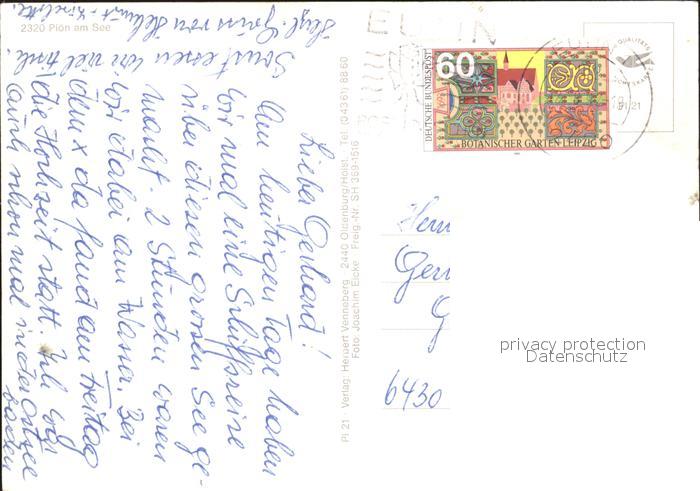 2320 Plön am See
Lieber Gerhard!
Am heutigen Tage haben
wir mal eine Schiffsreise
über diesen grossen See ge-
macht. 2 Stunden waren
wir dabei am Wasser. Bei
denn x da fand am Freitag
die Hochzeit statt. Ich war
auch schon mal in der Ostsee
baden
Sonst essen wir viel
Hzgl. Grüss von Helmut
Pl 21 Verlag: Herbert Venneberg 2440 Oldenburg/Holst. Tel. (04361) 8860
Foto: Joachim Eicke Freig.-Nr. SH 369-1516
DEUTSCHE BUNDESPOST
60
BOTANISCHER GARTEN LEIPZIG
QUALITÄTS
21
Herrn
6430
privacy protection
Datenschutz